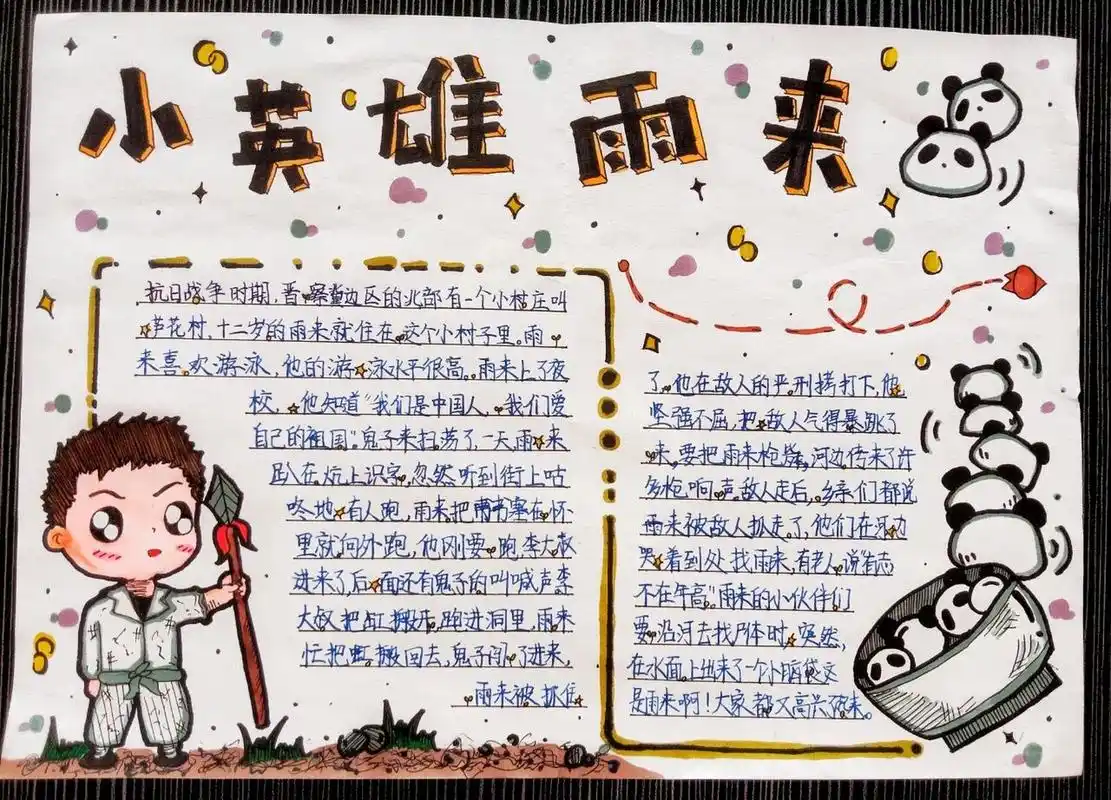 小英雄雨来
抗日战争时期,晋察冀边区的北部有一个小村庄叫
芦花村,十二岁的雨来就住在这个小村子里。雨
来喜欢游泳,他的游泳水平很高。雨来上了夜
校,他知道“我们是中国人,我们爱
自己的祖国”。鬼子来扫荡了,一天,雨来
趴在炕上识字,忽然听到街上咕
咚地有人跑,雨来把书塞在怀
里就向外跑,他刚要跑,李大叔
进来了,后面还有鬼子的叫喊声,李
大叔把缸搬开,跑进洞里,雨来
忙把缸搬回去,鬼子闯了进来,
雨来被抓住
了,他在敌人的严刑拷打下,他
坚强不屈,把敌人气得暴跳了
来,要把雨来枪毙,河边传来了许
多枪响声,敌人走后,乡亲们都说
雨来被敌人抓走了,他们在河边
哭着到处找雨来,有老人说“有志
不在年高”雨来的小伙伴们
要沿河去找尸体时,突然,
在水面上出来了一个小脑袋
是雨来啊!大家都又高兴